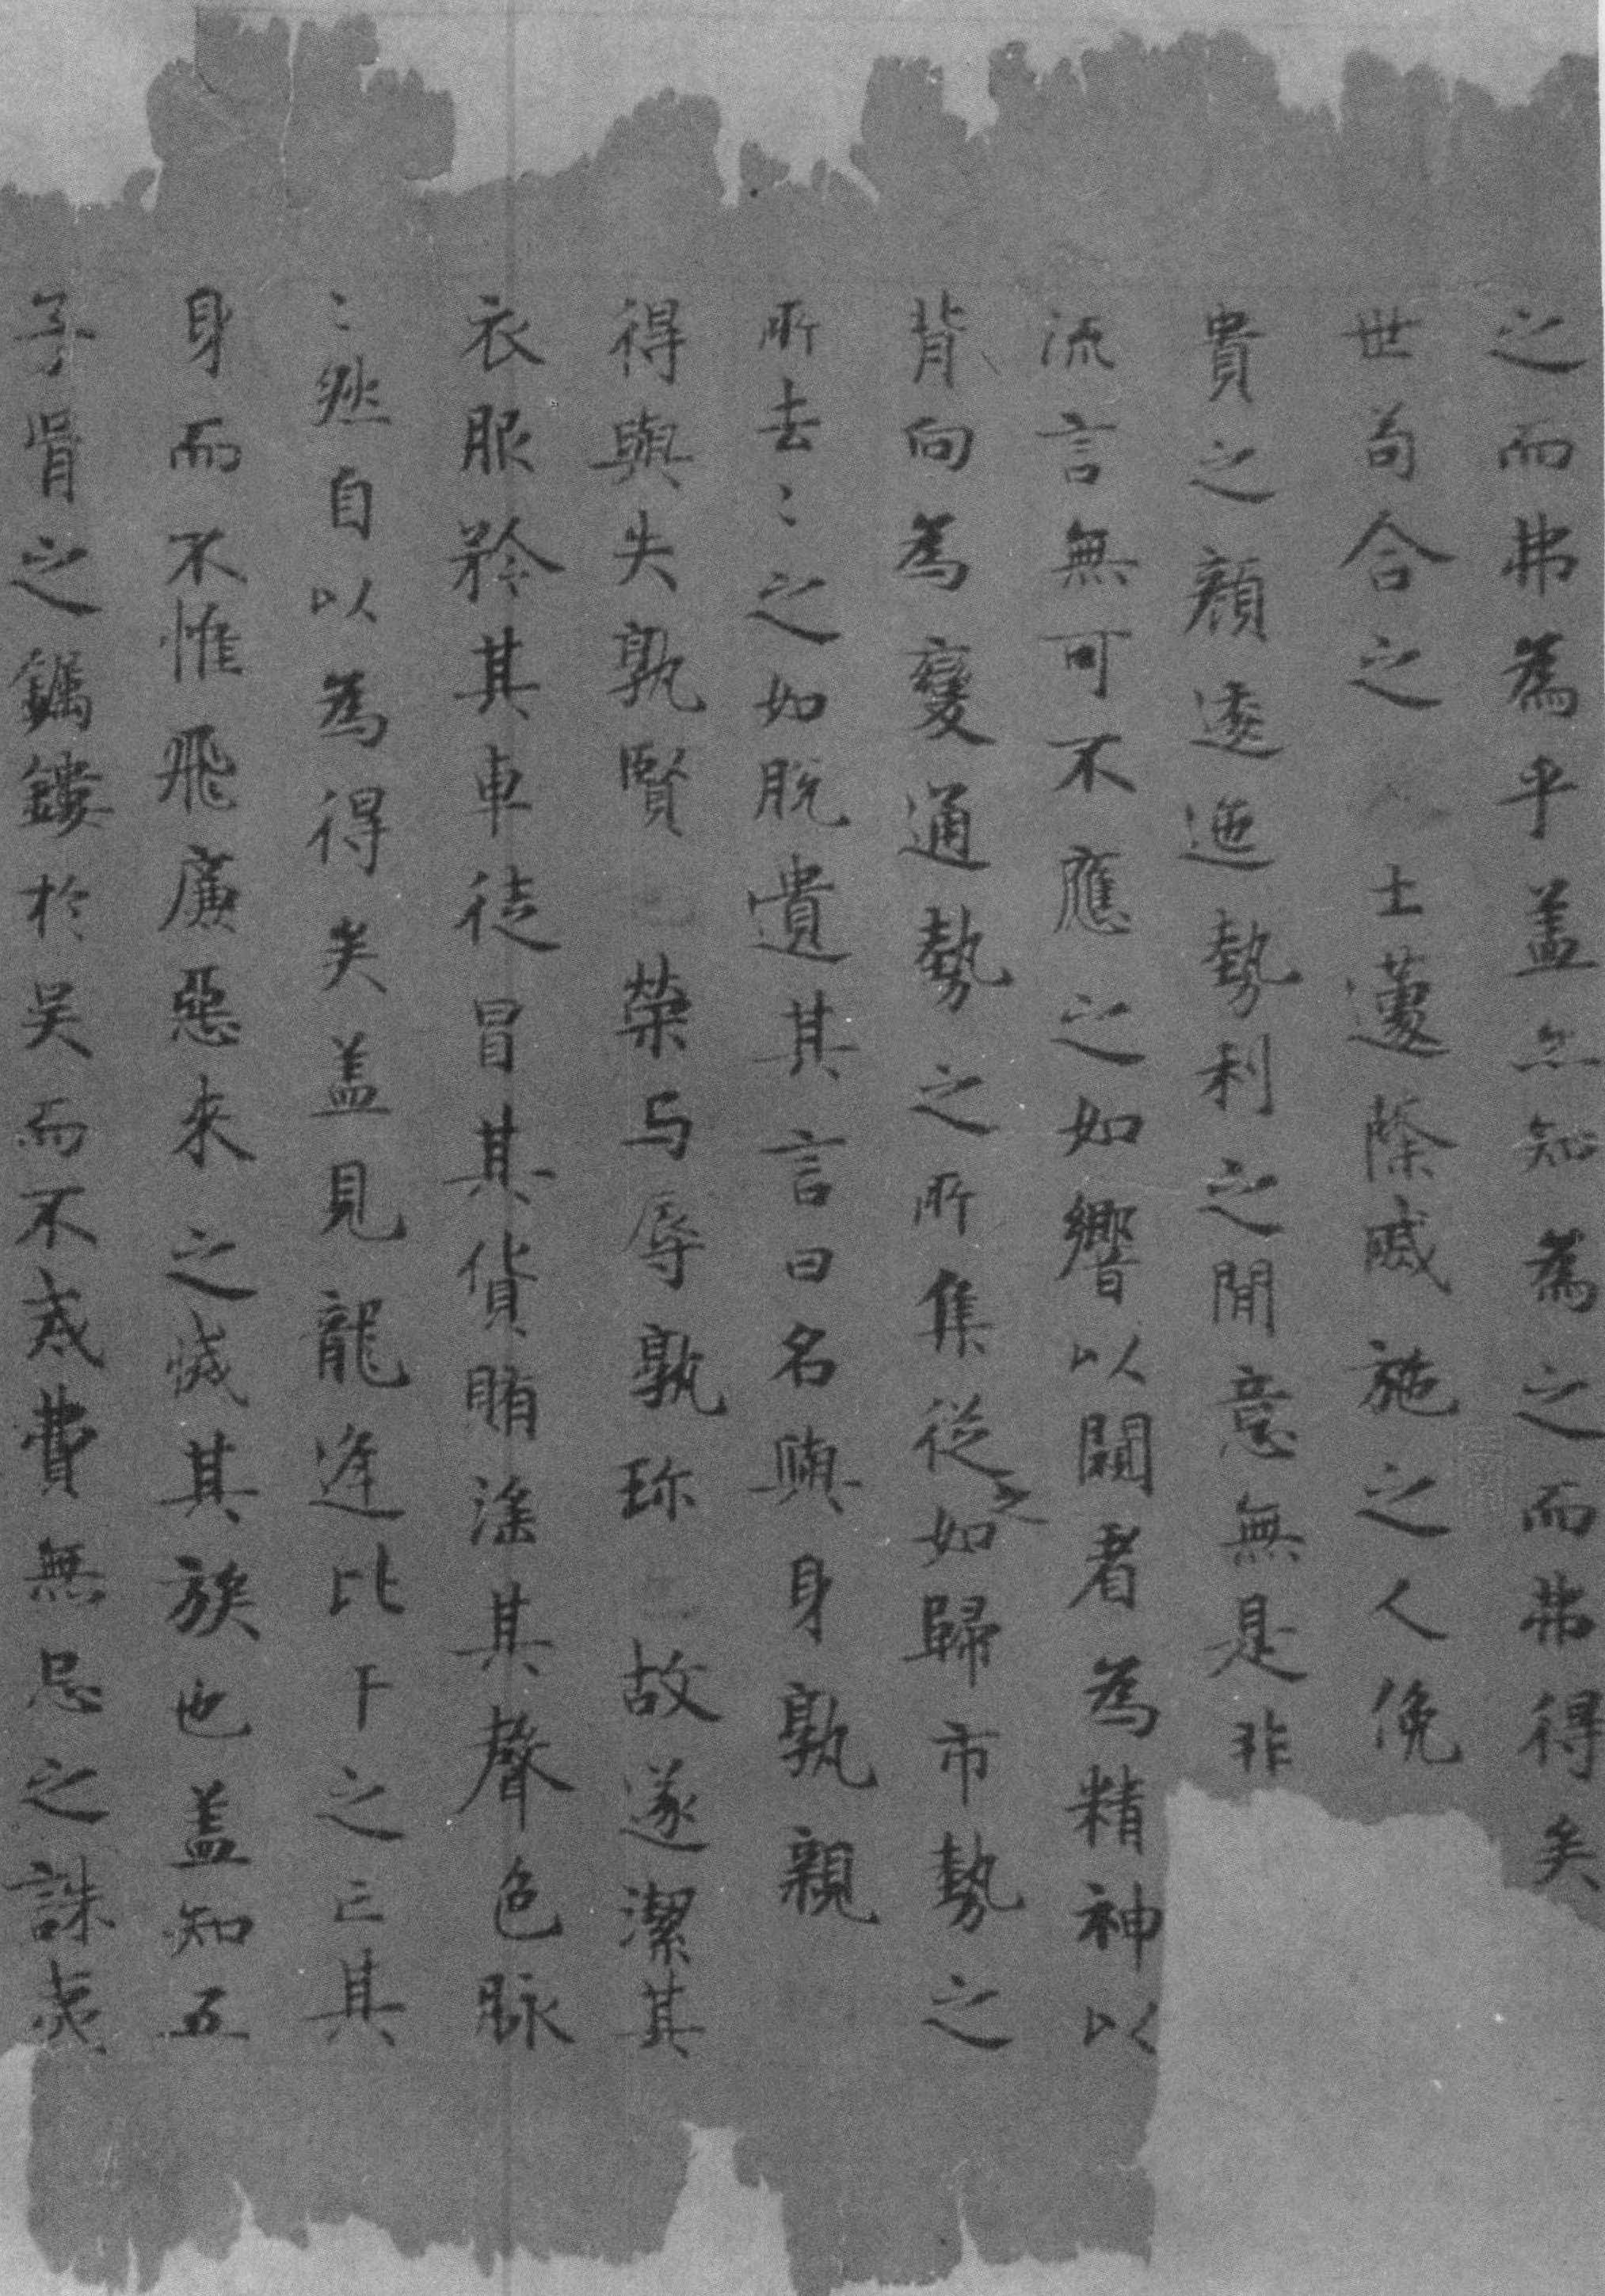 之而弗為乎盖亦知為之而弗得矣
世苟合之士蘧蒢戚施之人俛
貴之顔逶迤勢利之閒意無是非
流言無可不應之如響以闚看為精神以
背向為變通勢之所集從之如歸市勢之
所去〻之如脫遺其言曰名與身孰親
得與失孰賢榮与辱孰珎故遂潔其
衣服矜其車徒冒其貨賄淫其聲色脉
〻然自以為得矣盖見龍逢比干之亡其
身而不惟飛廉惡来之滅其族也盖知五
子胥之鑼鏤於吴而不戒費無忌之誅夷